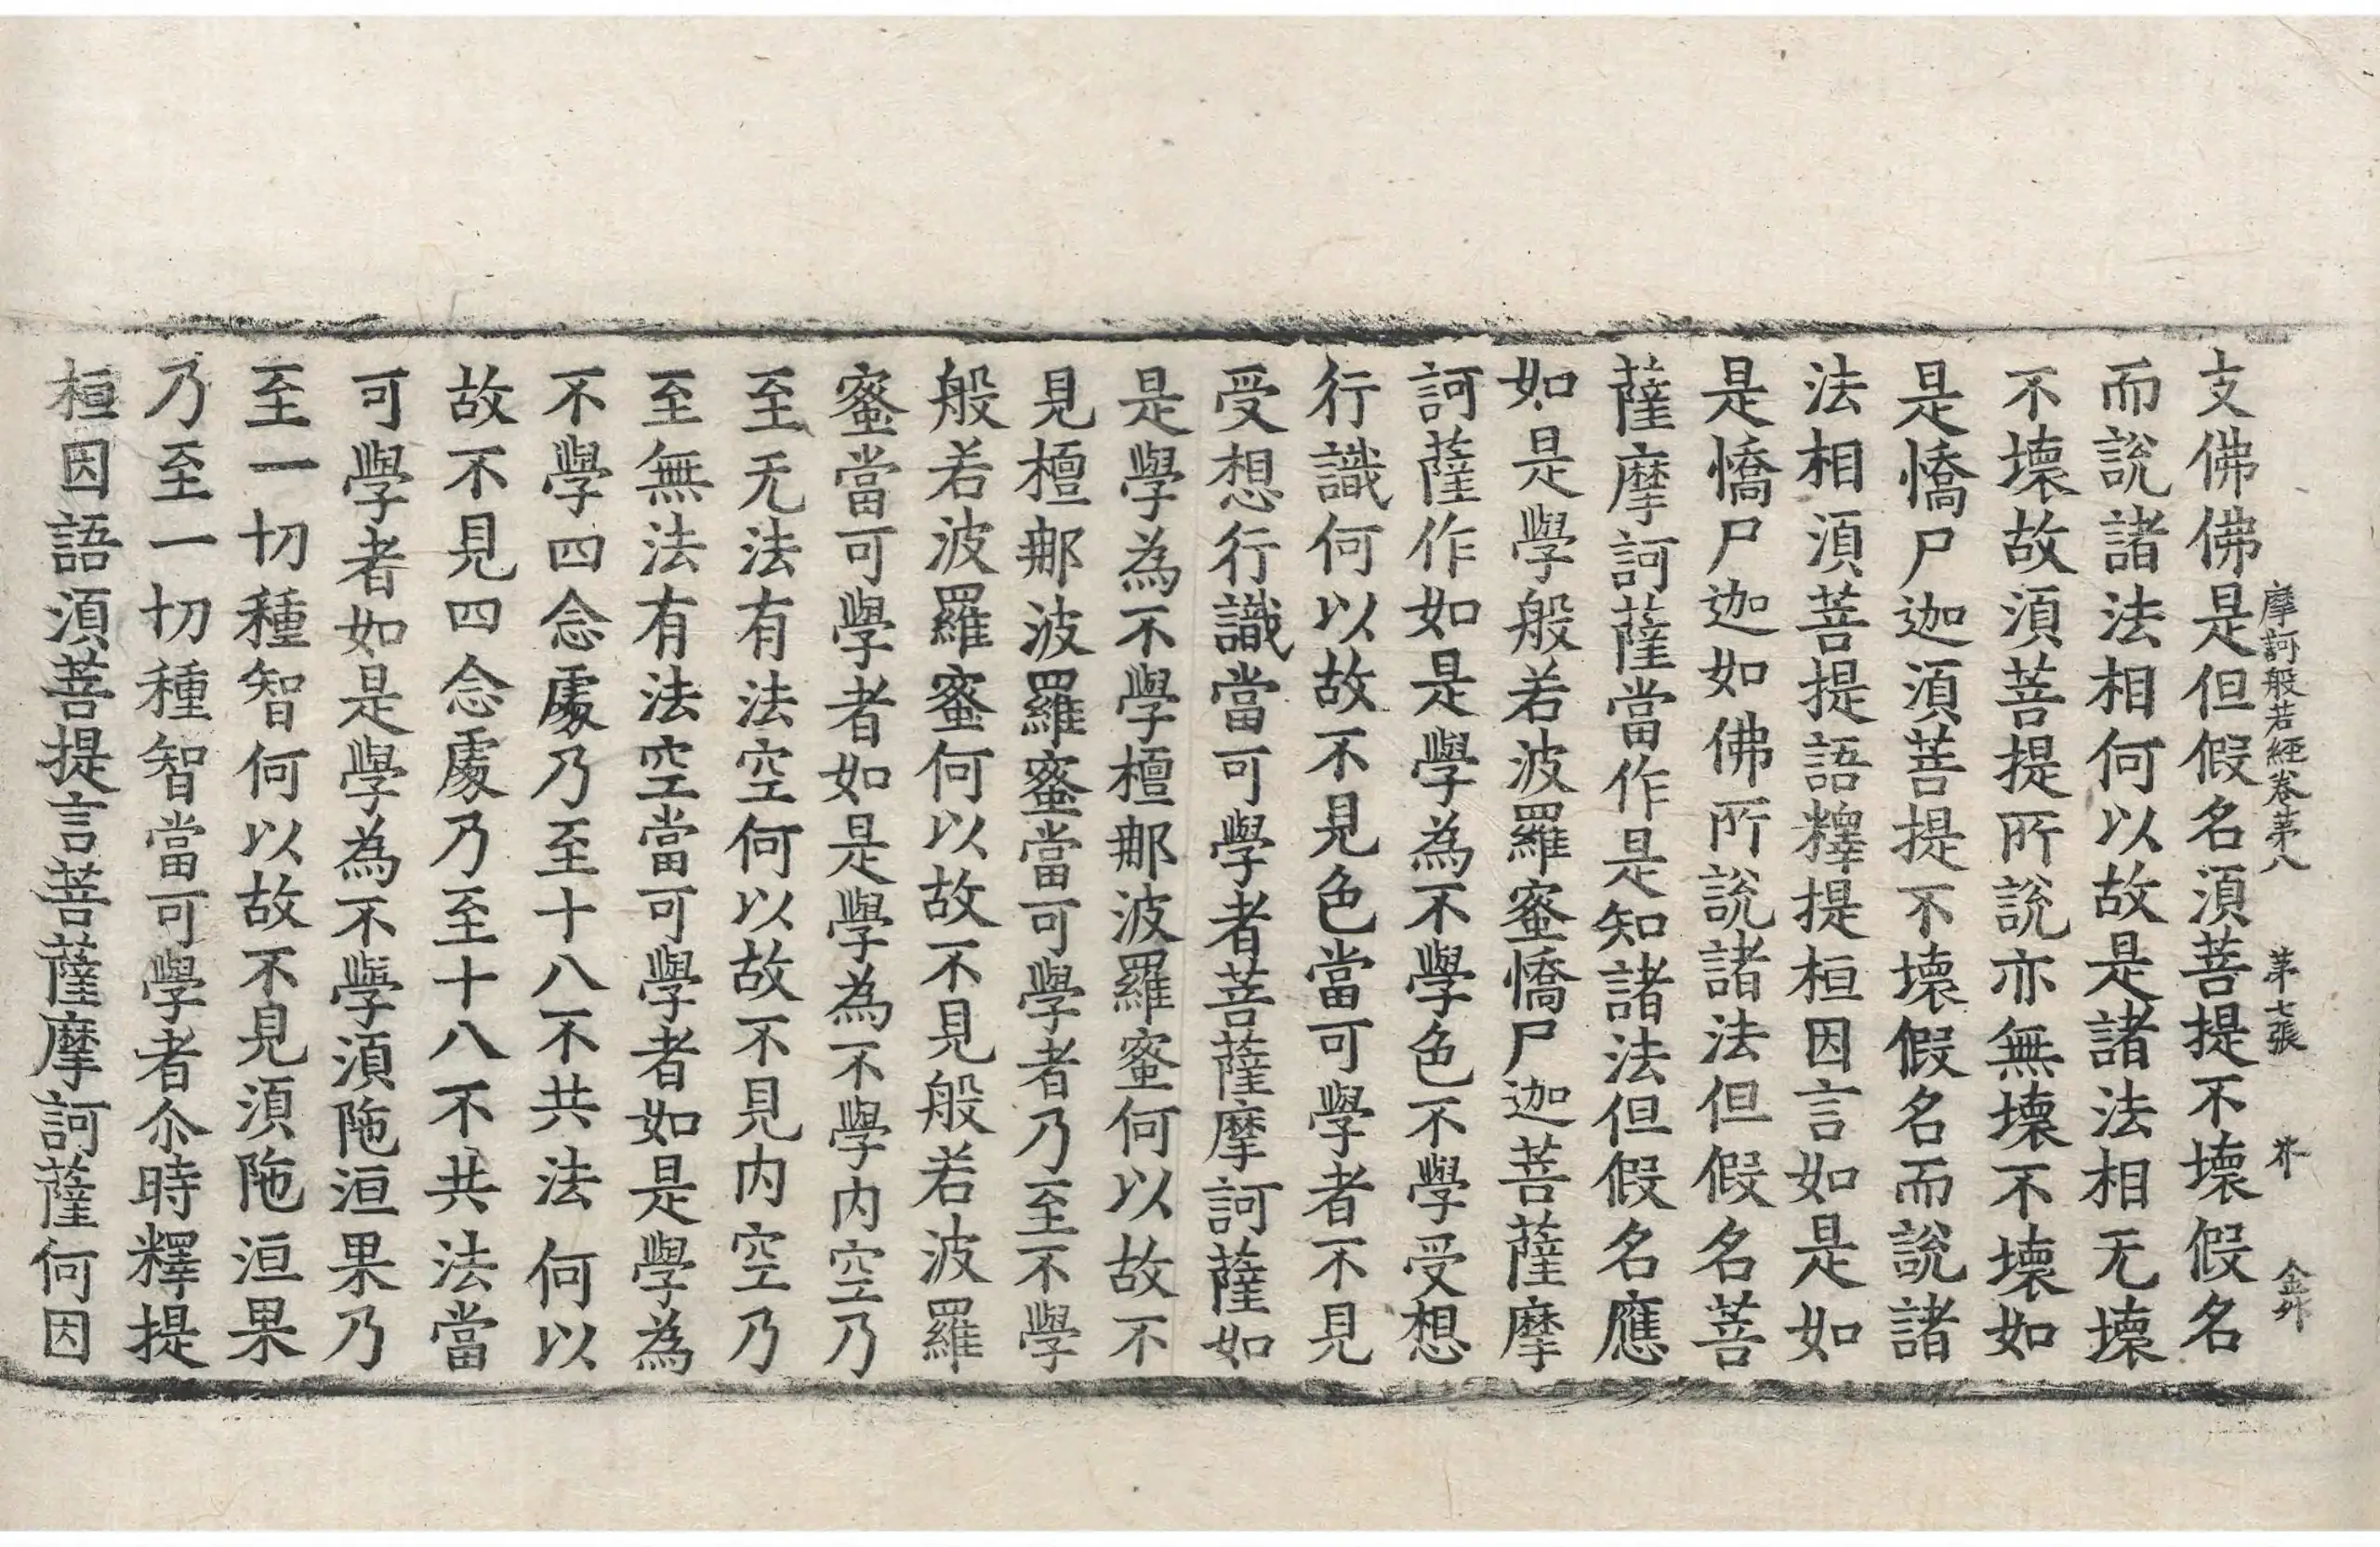 摩訶般若經卷第八 第七張 芥
支佛佛是但假名須菩提不壞假名
而說諸法相何以故是諸法相无壞
不壞故須菩提所說亦無壞不壞如
是憍尸迦須菩提不壞假名而說諸
法相須菩提語釋提桓因言如是如
是憍尸迦如佛所說諸法但假名菩
薩摩訶薩當作是知諸法但假名應
如是學般若波羅蜜憍尸迦菩薩摩
訶薩作如是學為不學色不學受想
行識何以故不見色當可學者不見
受想行識當可學者菩薩摩訶薩如
是學為不學檀那波羅蜜何以故不
見檀那波羅蜜當可學者乃至不學
般若波羅蜜何以故不見般若波羅
蜜當可學者如是學為不學內空乃
至无法有法空何以故不見內空乃
至無法有法空當可學者如是學為
不學四念處乃至十八不共法何以
故不見四念處乃至十八不共法當
可學者如是學為不學須陁洹果乃
至一切種智何以故不見須陁洹果
乃至一切種智當可學者尒時釋提
桓因語須菩提言菩薩摩訶薩何因